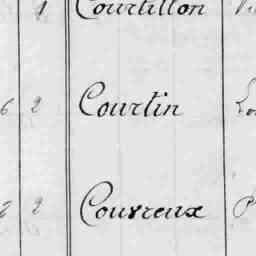 1 Courtillon
6 2 Courtin
2 2 Couvreux P